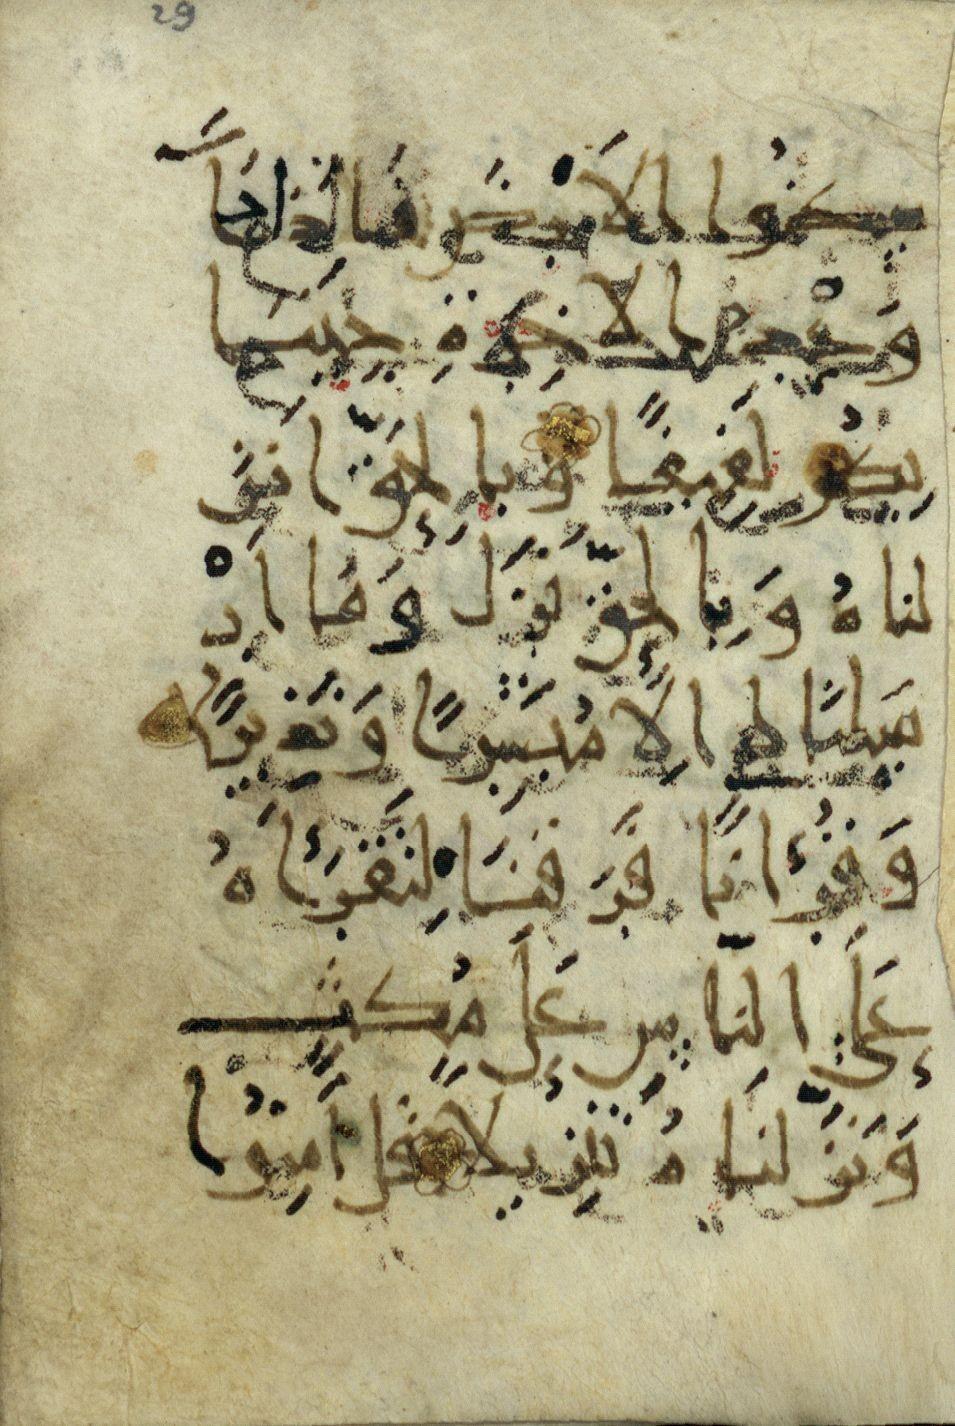 29
سكنوا الارض فاذا جا
وعد الاخرة جئنا
بكم لفيفا وبالحق انز
لناه وبالحق نزل وما ار
سلناك الا مبشرا ونذيرا
وقرءانا فرقناه لتقراه
على الناس على مكث
ونزلناه تنزيلا قل امنوا